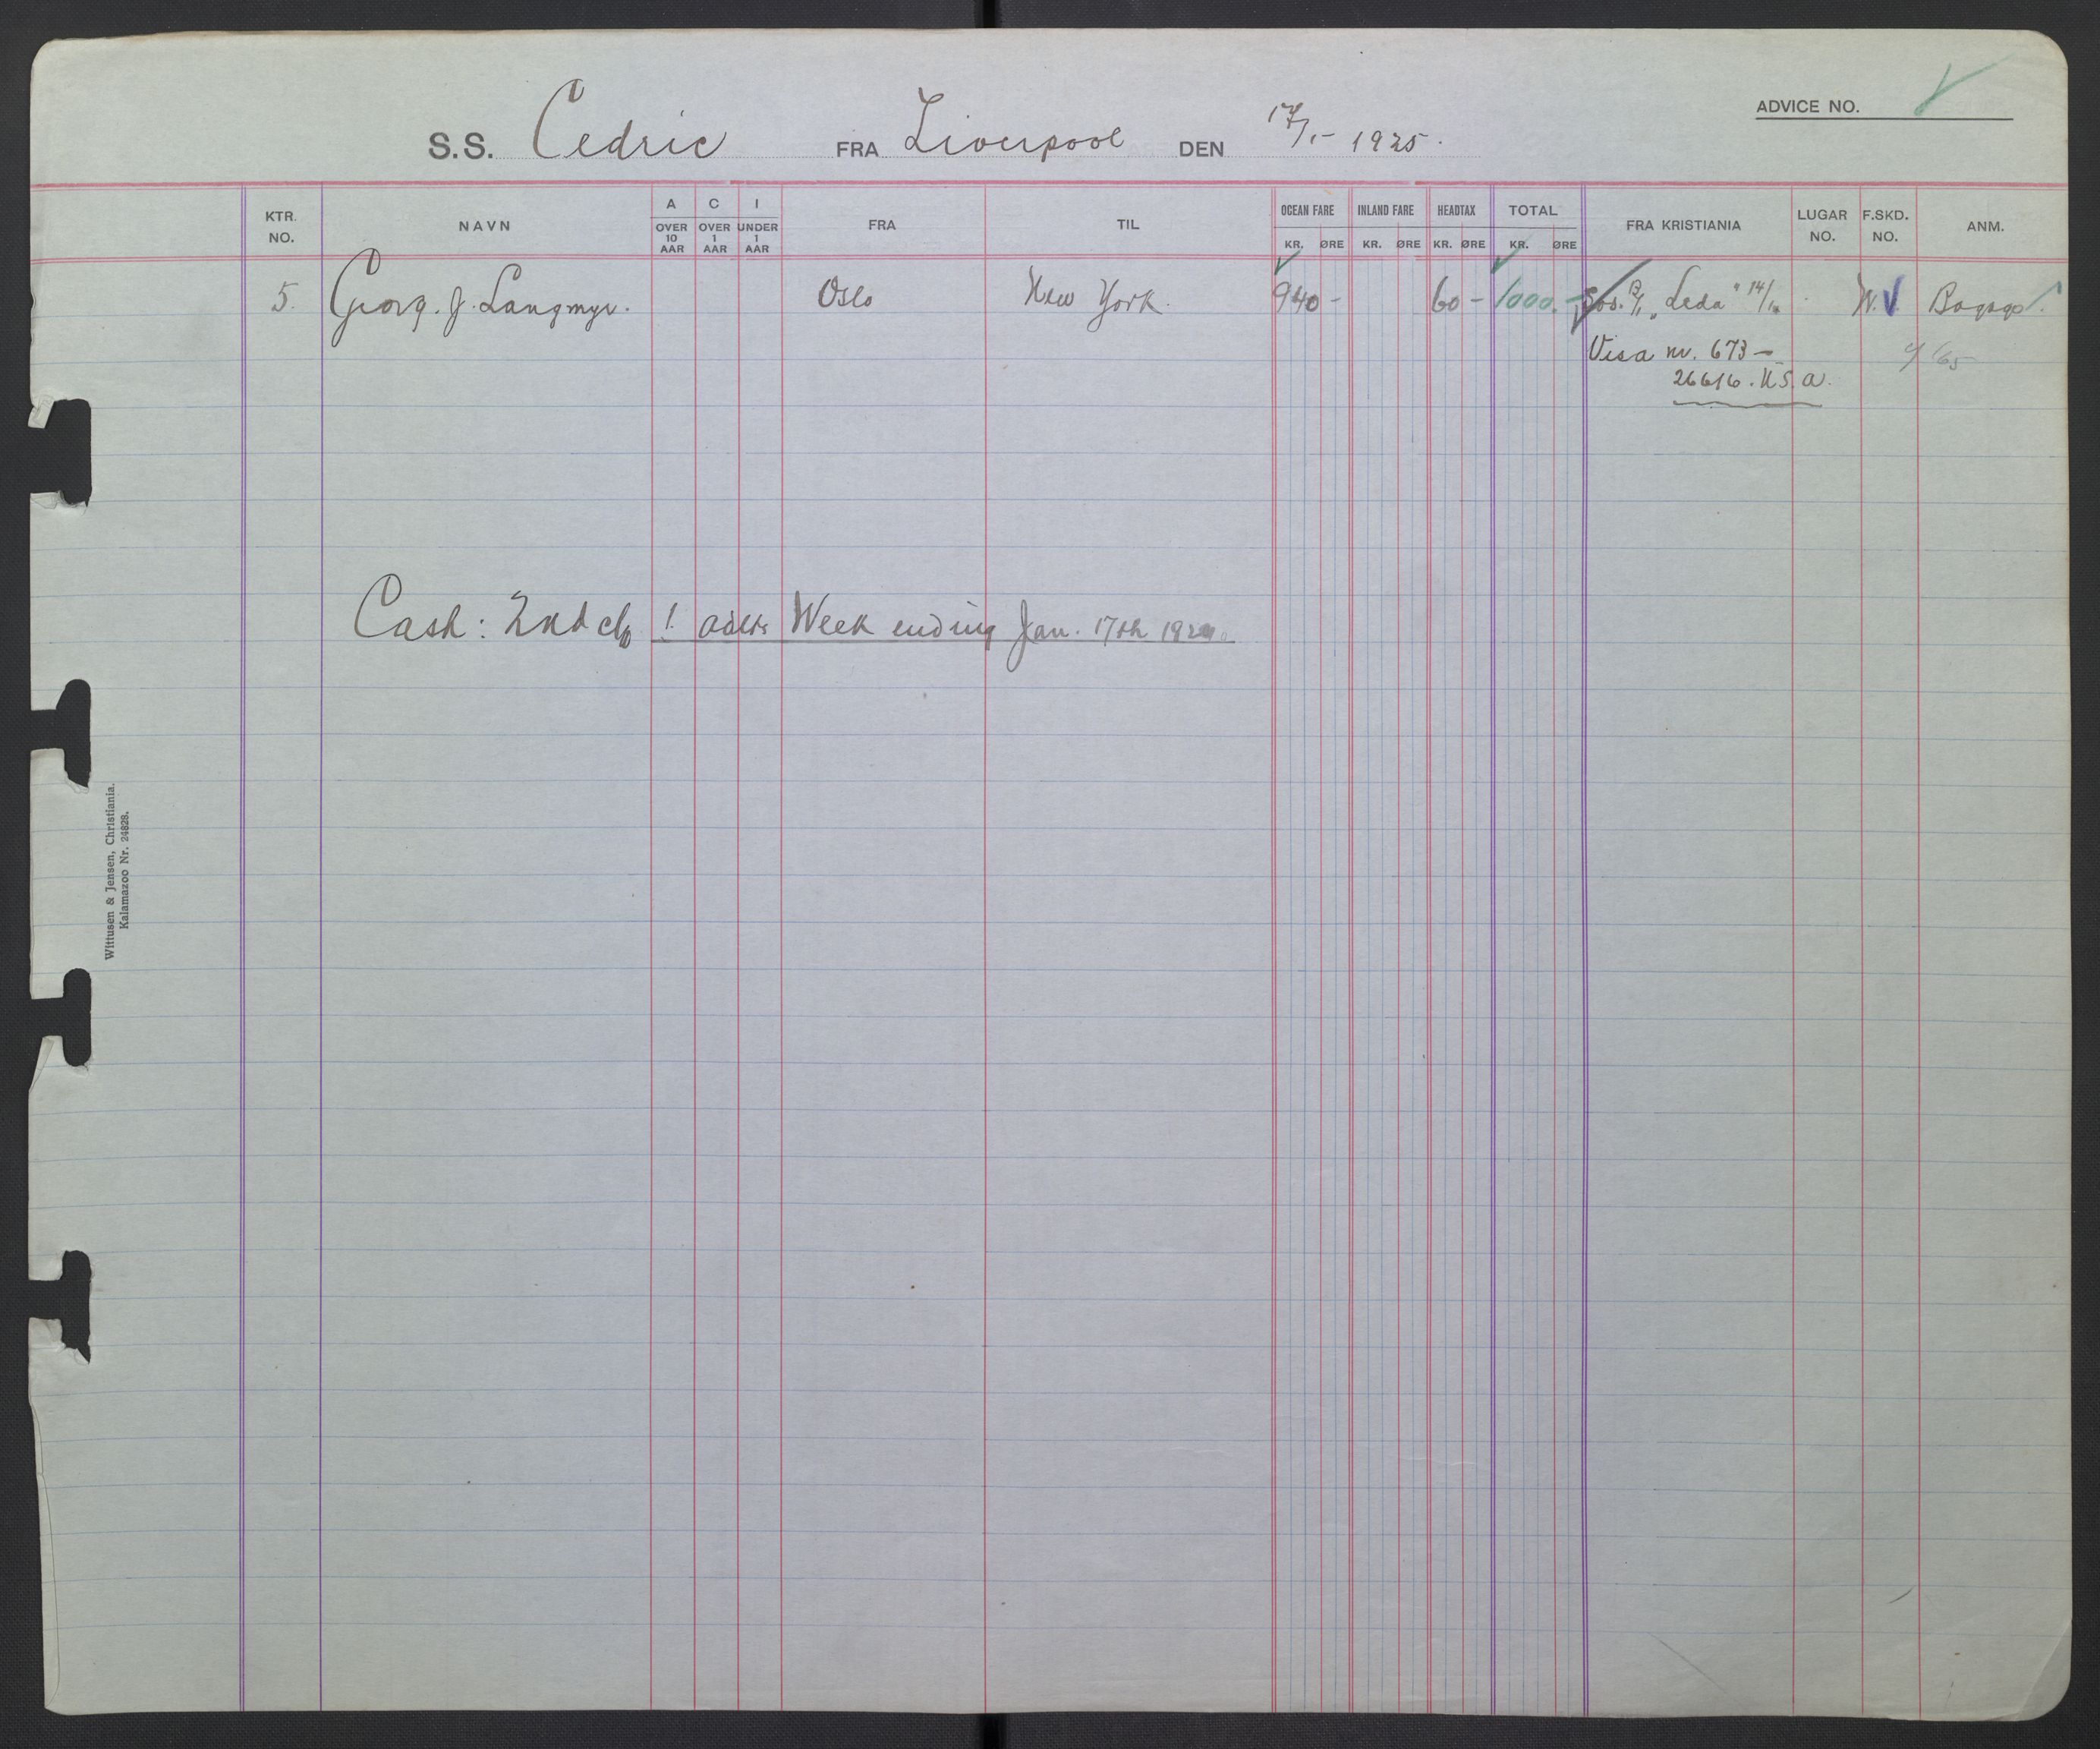 ADVICE NO.
S.S. Cedric FRA Liverpool DEN 17/1- 1925.
KTR. NO. NAVN A OVER 10 AAR C OVER 1 AAR I UNDER 1 AAR FRA TIL OCEAN FARE KR. ØRE INLAND FARE KR. ØRE HEADTAX KR. ØRE TOTAL KR. ØRE FRA KRISTIANIA LUGAR NO. F.SKD. NO. ANM.
5. Georg. J. Langmyr. Oslo New York. 940 - 60 - 1000. - 13/1 "Leda" 14/1 Bagage
Visa nr. 673 -
26616. U.S.A.
Cash: 2nd cls 1 adlts Week ending Jan. 17th
Wittusen & Jensen, Christiania.
Kalamazoo Nr. 24828.